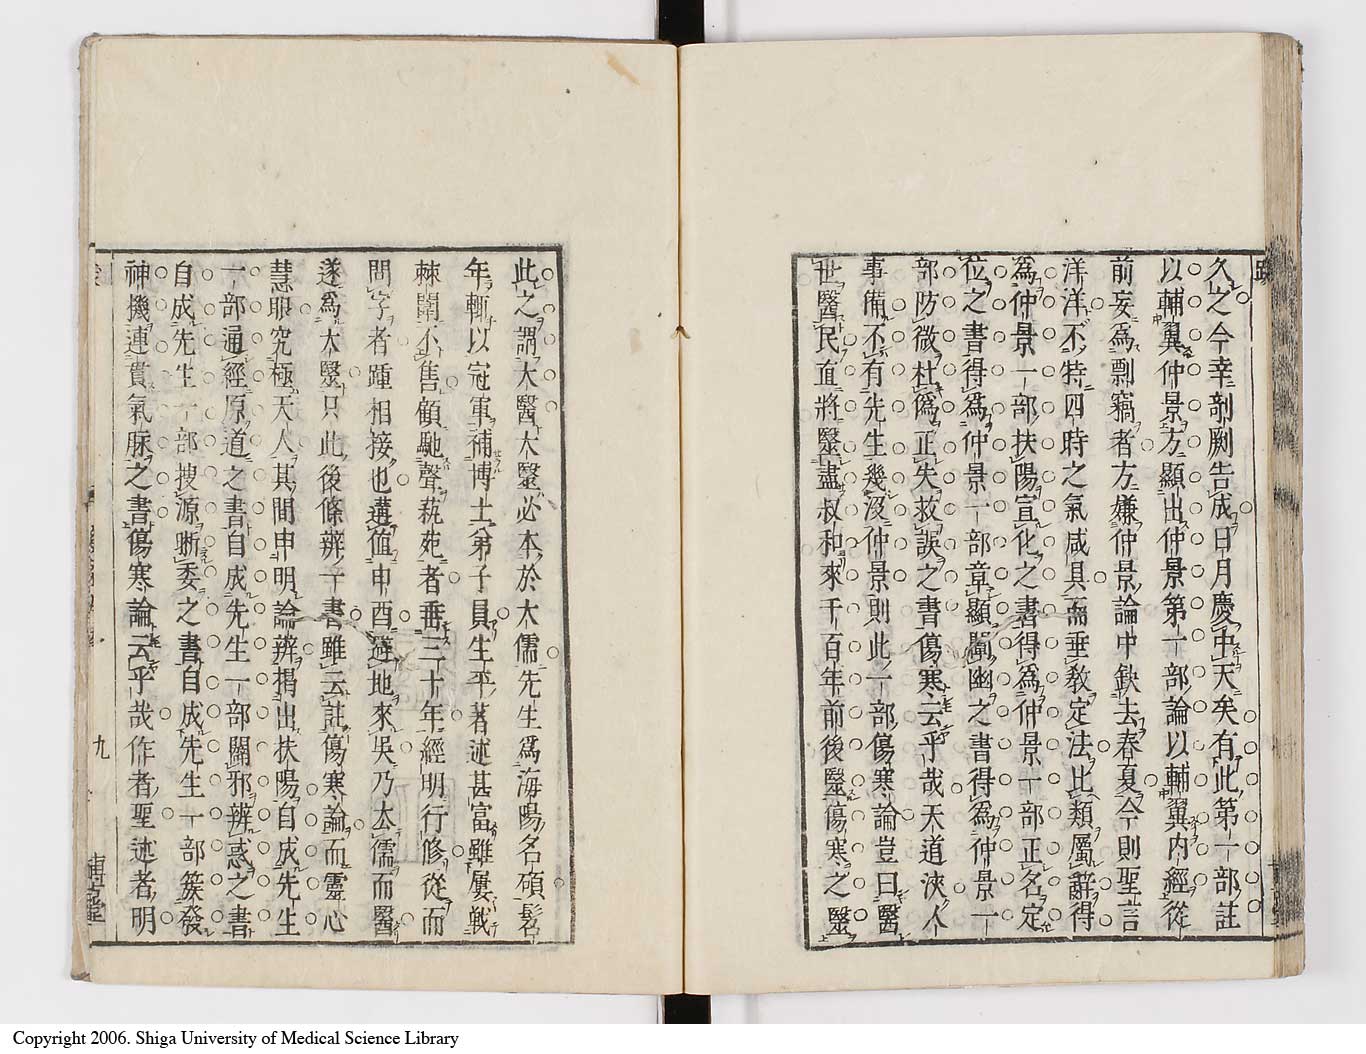 久之今幸剞劂告成日月慶中天矣有此第一部註
以輔翼仲景方顯出仲景第一部論以輔翼內經從
前妄為剽竊者方嫌仲景論中缺去春夏今則聖言
洋洋不特四時之氣咸具而垂教定法比類屬辭得
為仲景一部扶陽宣化之書得為仲景一部正名定
位之書得為仲景一部章顯闡幽之書得為仲景一
部防微杜僞正失救誤之書傷寒云乎哉天道浹人
事備不有先生幾沒仲景則此一部傷寒論豈曰醫
世醫民直將毉盡叔和來千百年前後毉傷寒之毉
此之謂大醫大毉必本於大儒先生為海陽名碩髫
年輒以冠軍補博士弟子員生平著述甚富雖屢戰
棘闈不售顧馳聲藝苑者垂三十年經明行修從而
問字者踵相接也遘值申酉避地來吳乃太儒而醫
遂為大毉只此後條辨一書雖云註傷寒論而靈心
慧眼究極天人其間申明論辨揭出扶陽自成先生
一部通經原道之書自成先生一部闢邪辨惑之書
自成先生一部搜源晰委之書自成先生一部簇發
神機連貫氣脉之書傷寒論云乎哉作者聖述者明
九
博古堂
Copyright 2006. Shiga University of Medical Science Library